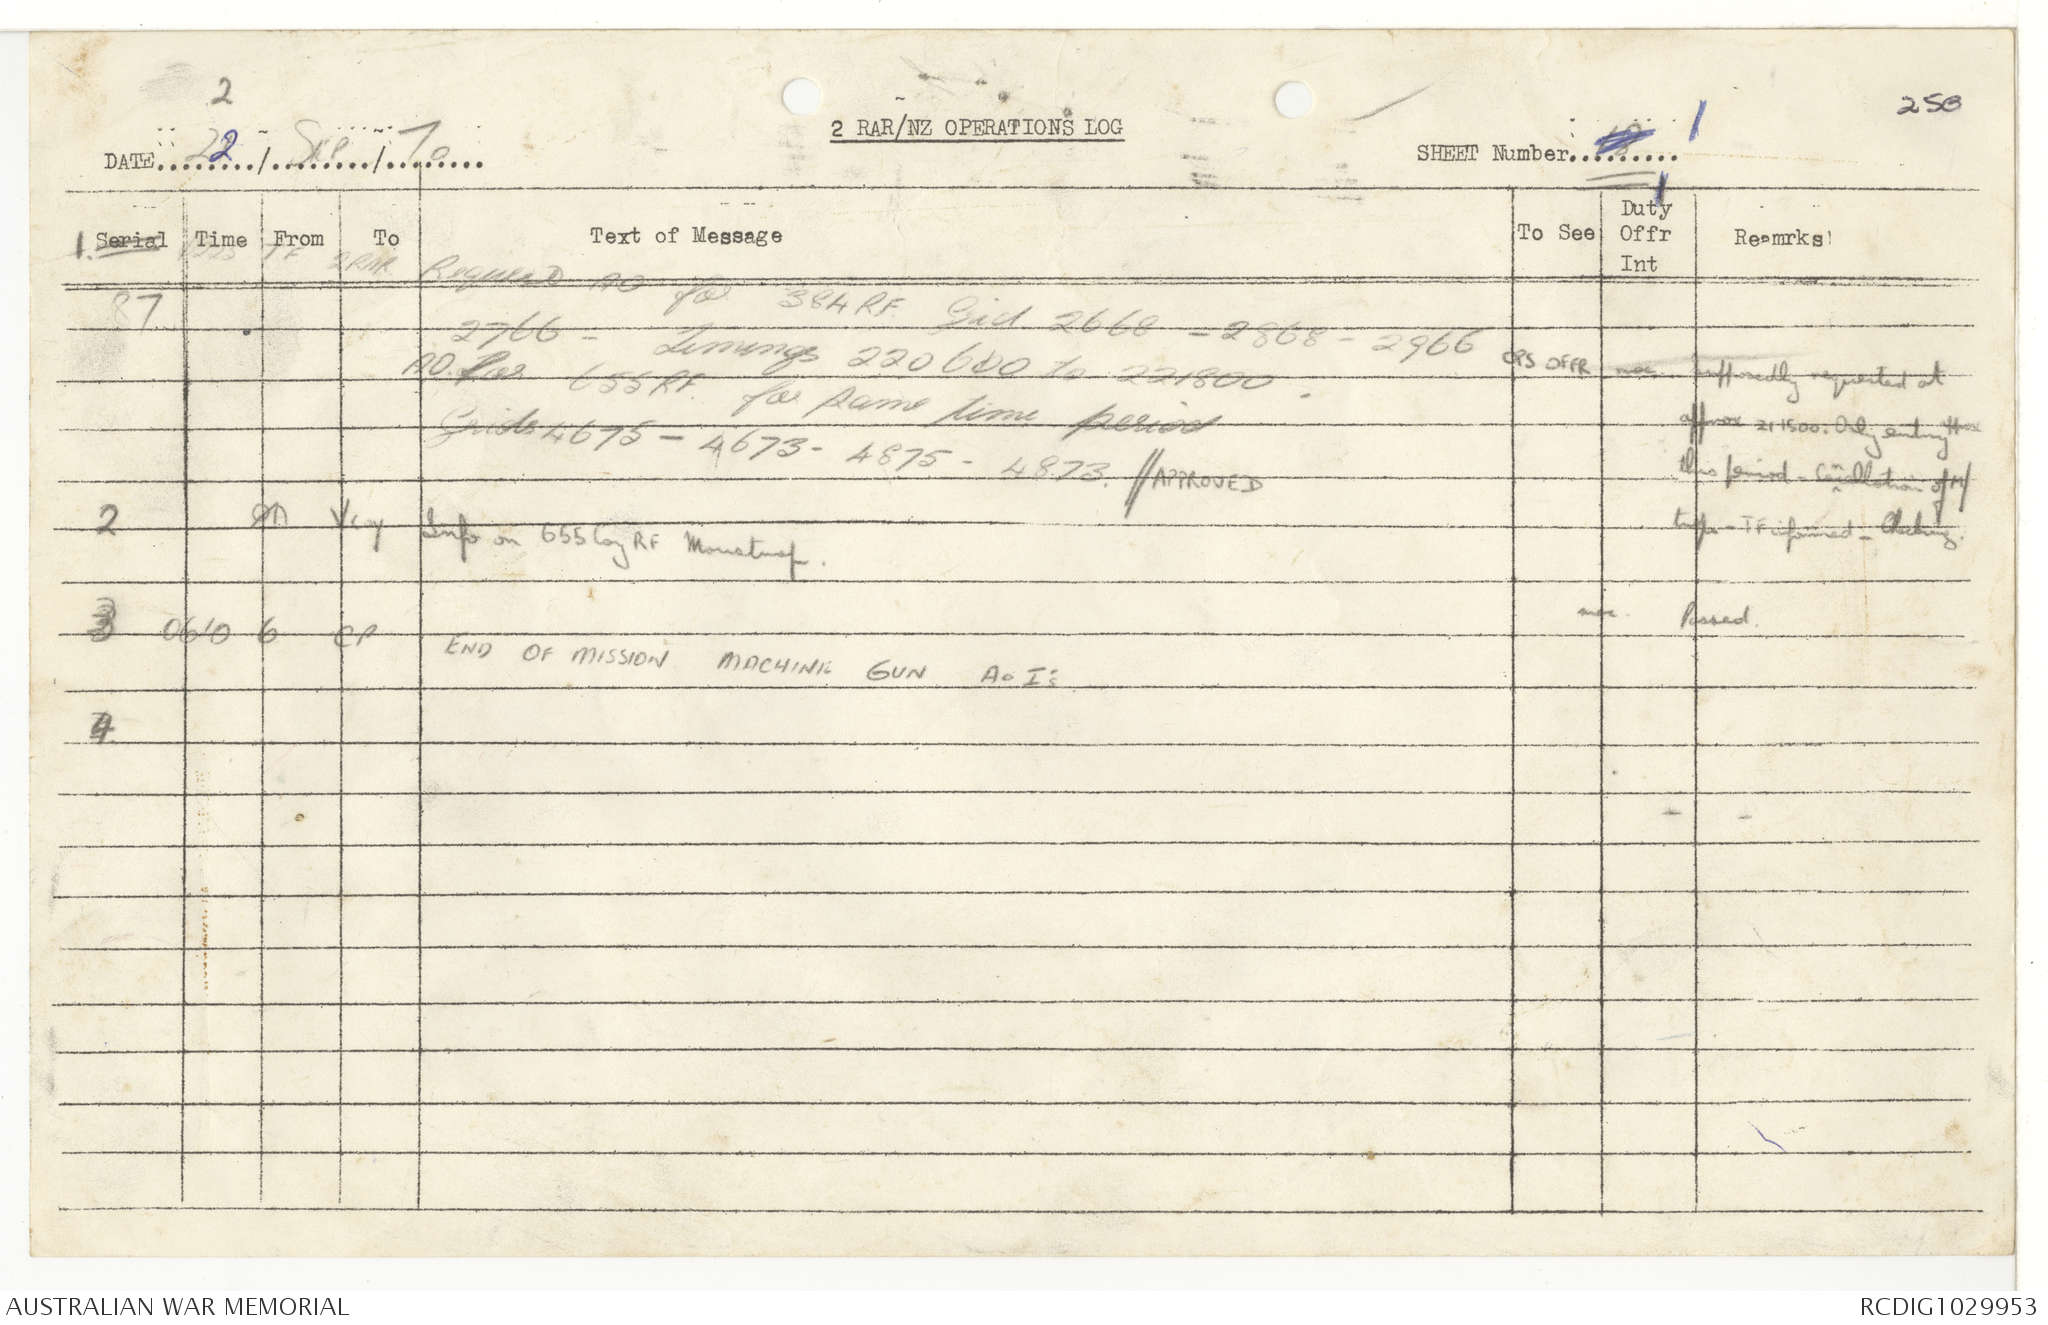 2
258
2 RAR/NZ OPERATIONS LOG
DATE 22 / Sep / 70
SHEET Number 1
Serial Time From To Text of Message To See Duty Offr Int Reamrks
1. TF 2RAR Request AO for 384 RF Grid 2668 - 2868 - 2966
87
2766 - Timings 220600 to 221800.
AO. for 655 RF. for same time period
Grids 4675 - 4673 - 4875 - 4873. // APPROVED
OPS OFFR Supposedly requested at
approx 211500. Only entry
this period - Cancellation of
- TF informed - Checking.
2 Vcoy Info on 655 Coy RF
3 0610 6 CP END OF MISSION MACHINE GUN Ao I's
Passed.
4
AUSTRALIAN WAR MEMORIAL
RCDIG1029953